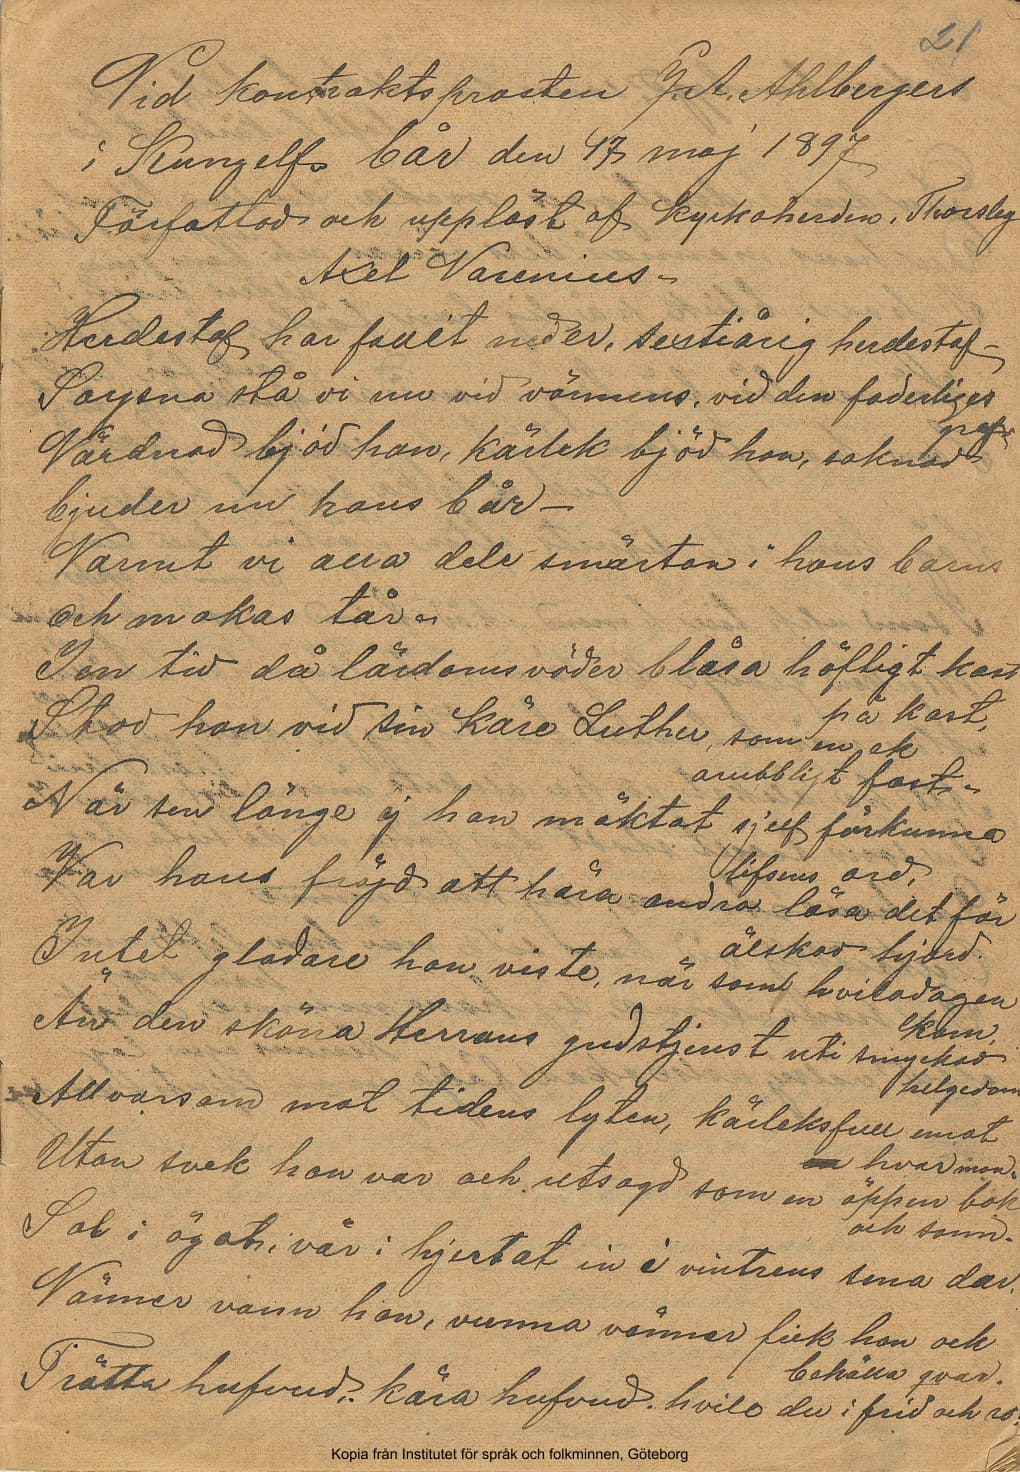 21
Vid kontraktsprosten J. A. Ahlbergers
i Kungelfs bår den 17 maj 1897
Författad och uppläst af kyrkoherden, Thorsby
Axel Varenius -
Herdestaf har fallit neder, sextiårig herdestaf -
Sörjena stå vi nu vid vännens, vid den faderliges
graf.
Vårdnad bjöd han, kärlek bjöd han, saknad
bjuder nu hans bår -
Varmt vi alla dela smärtan i hans barns
och makas tår -
I en tid då lärdomsväder blåsa häftigt kast
på kast,
Stod han vid sin käre Luther, som en ek
orubbligt fast -
När sen länge ej han mäktat sjelf förkunna
lifsens ord,
Var hans fröjd att höra andra läsa det för
älskad hjord.
Intet gladare han viste, när som hvilodagen
kom,
Än den sköna Herrans gudstjenst uti smyckad
helgedom
Allvarsam mot tidens lyten, kärleksfull emot
hvar man.
Utan svek han var och utsagd som en öppen bok
och sann.
Sol i ögat, vår i hjertat in i vintrens sena dar.
Vänner vann han, vunna vänner fick han ock
behålla qvar.
Trötta hufvud, kära hufvud. hvila du i frid och ro!
Kopia från Institutet för språk och folkminnen, Göteborg